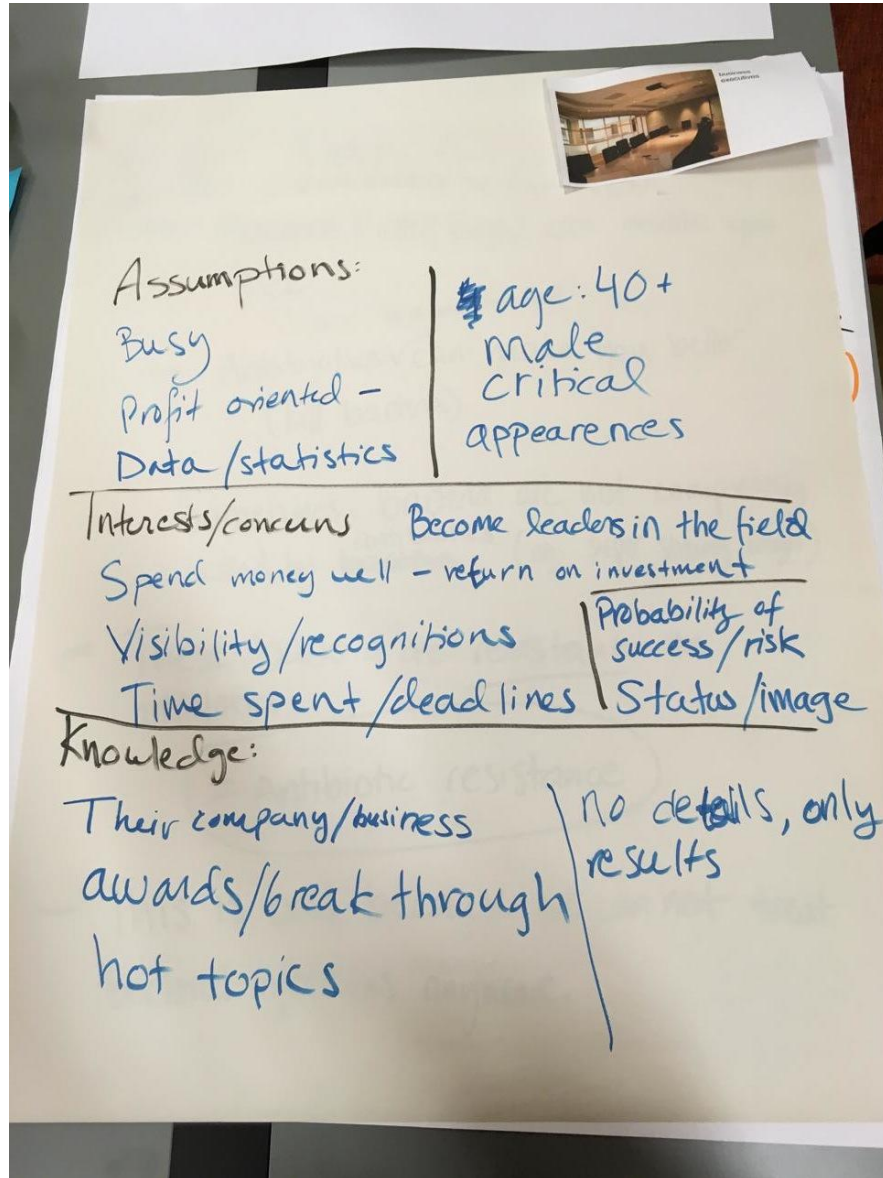 business
executives
Assumptions:
Busy
Profit oriented -
Data/statistics
age: 40+
male
critical
appearences
Interests/concerns
Become leaders in the field
Spend money well - return on investment
Visibility/recognitions
Time spent/deadlines
Probability of
success/risk
Status/image
Knowledge:
Their company/business
awards/breakthrough
hot topics
no details, only
results